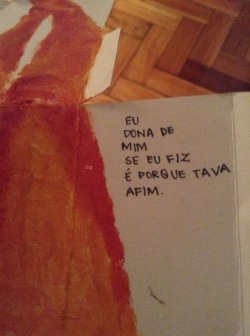 EU
DONA DE
MIM
SE EU FIZ
É PORQUE TAVA
AFIM.